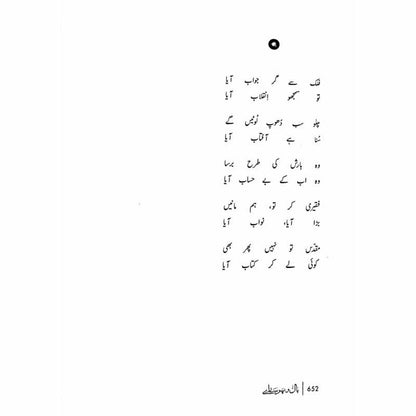 فلک سے گر جواب آیا
تو سمجھو اِنقلاب آیا
چلو سب دُھوپ لُوٹیں گے
سُنا ہے آفتاب آیا
وہ بارش کی طرح برسا
وہ اب کے بے حساب آیا
فقیری کر تو، ہم مانیں
بڑا آیا، نواب آیا
مقدّس تو نہیں پھر بھی
کوئی لے کر کتاب آیا
652